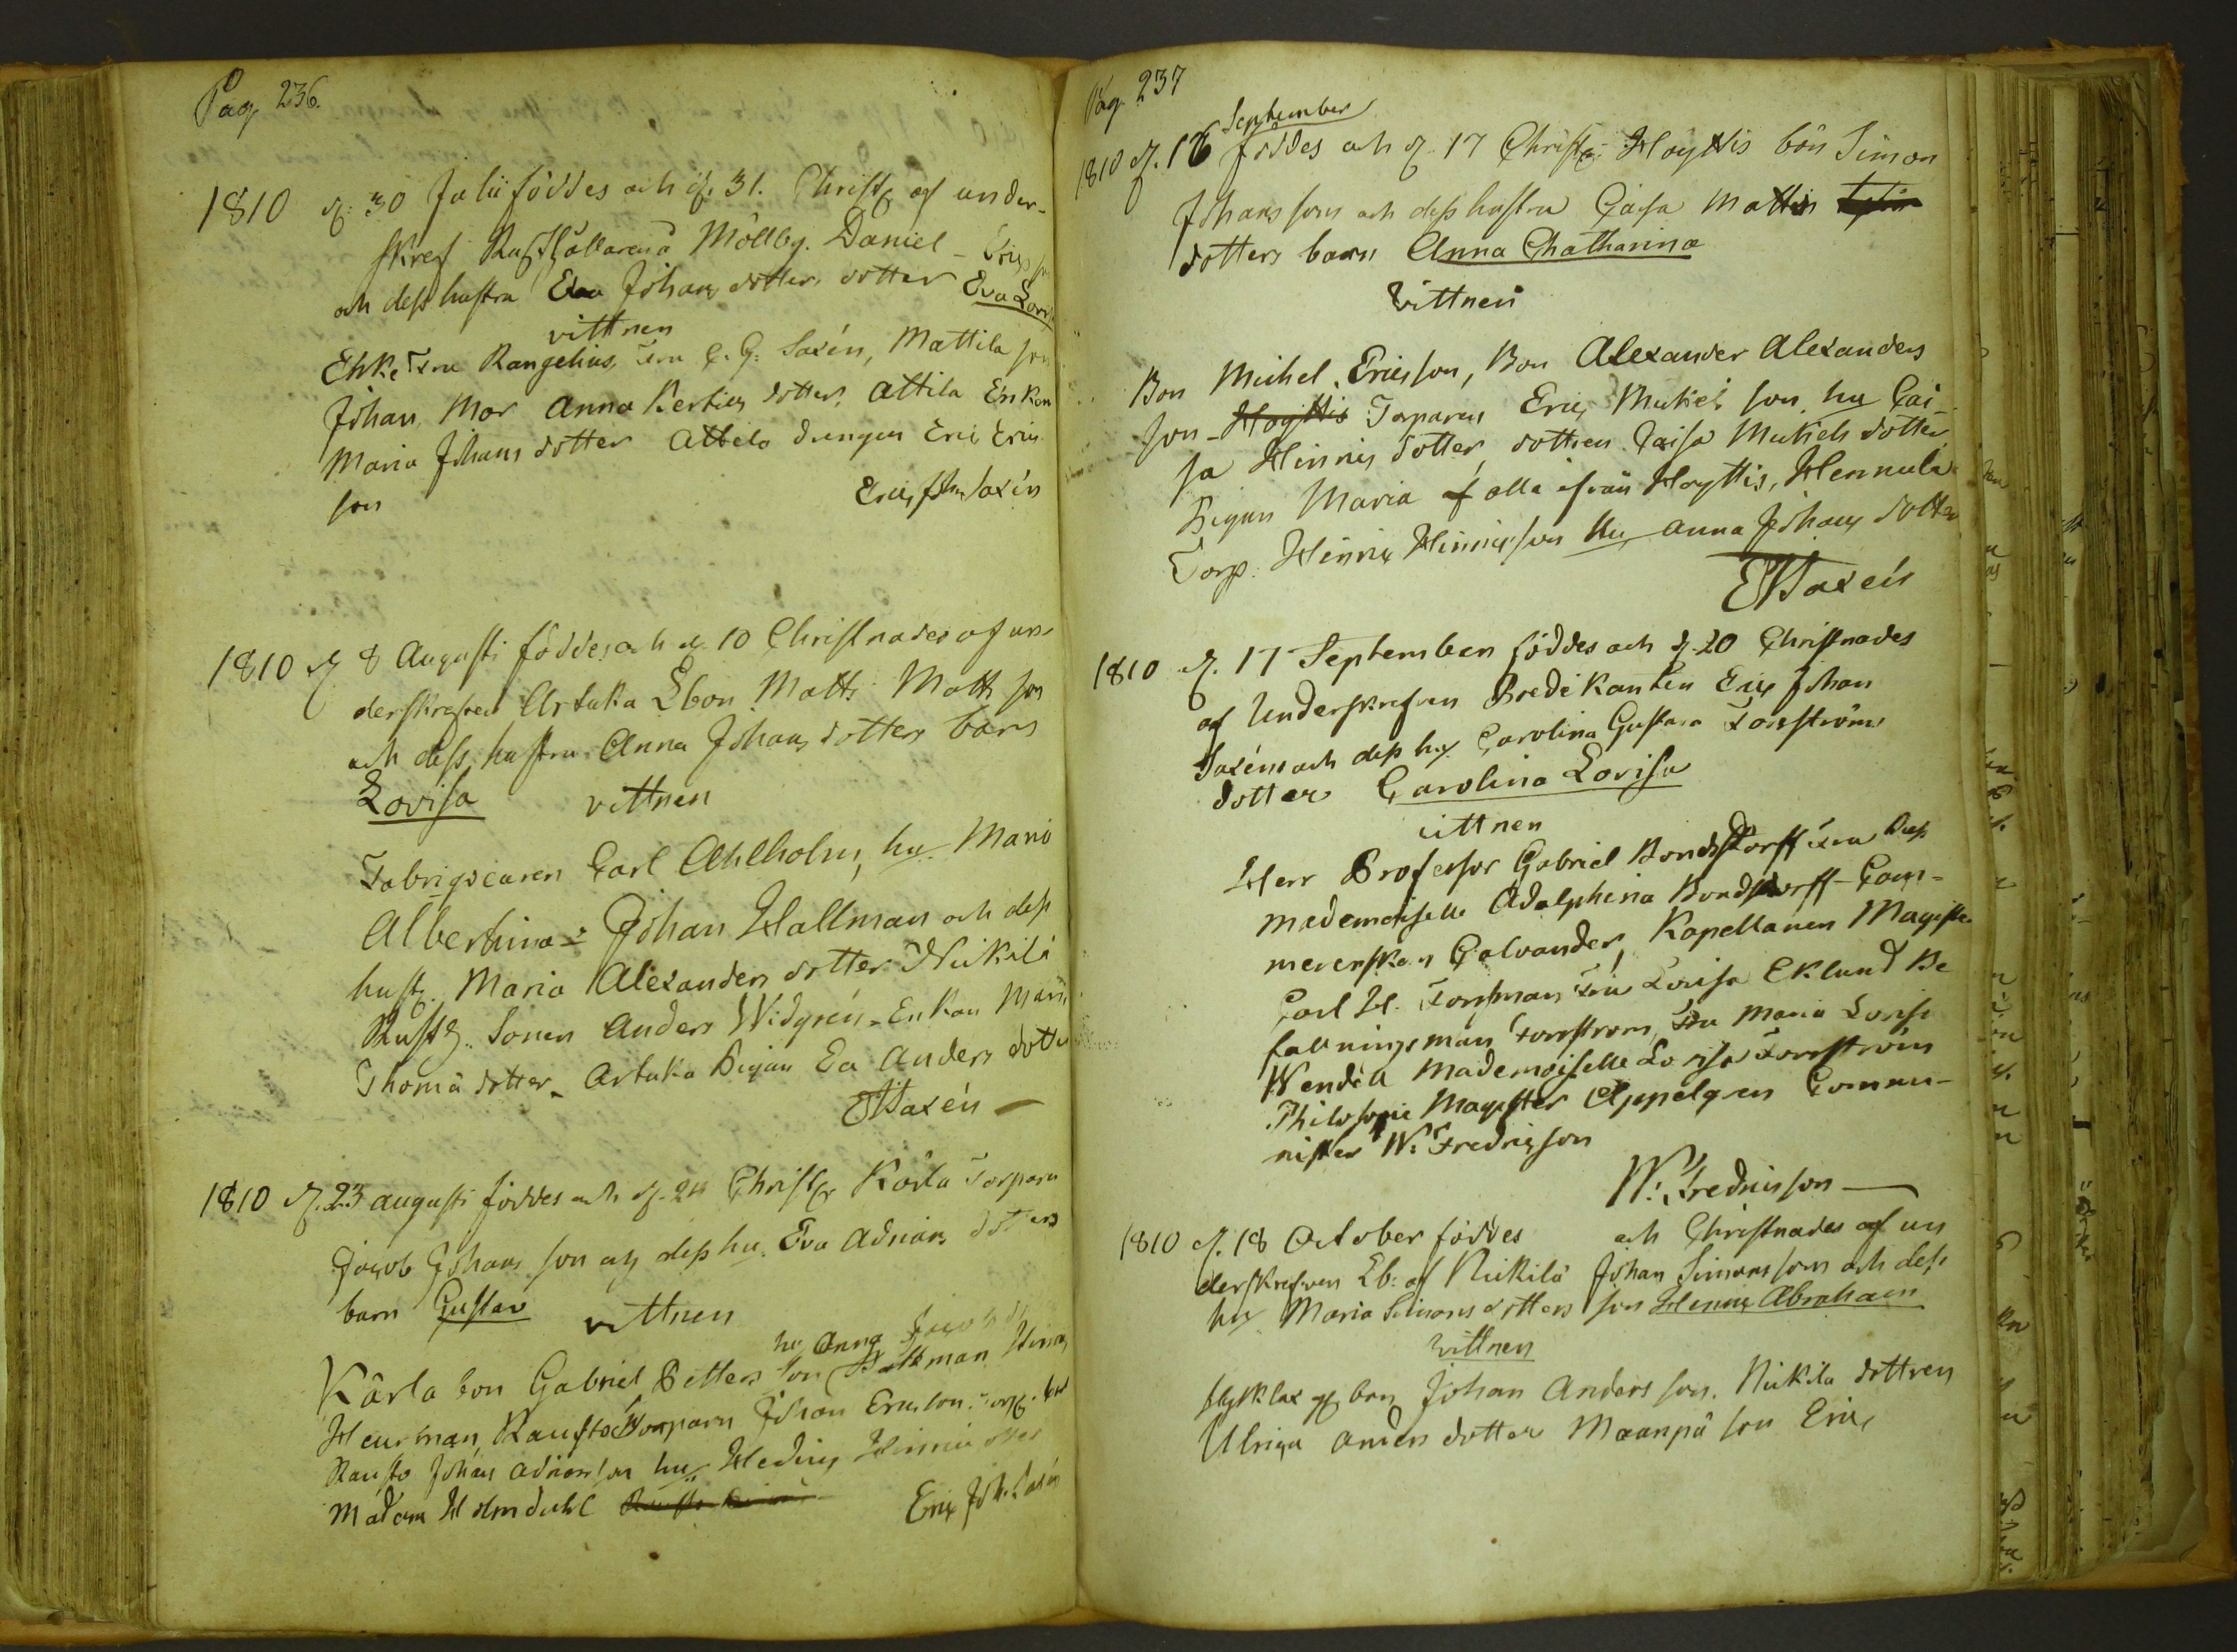 Pag. 236.
1810 d. 30 Julii föddes och d. 31. Christ. af under-
skref Rusthållarena Möllby. Daniel Erics son
och dess hustru Eva Johans dotters dotter Eva Lovisa
vittnen
Enke Fru Rangelius, Fru C. G. Saxén, Mattila son
Johan, Mor Anna Bertils dotter, Attila Enkan
Maria Johans dotter Attila drengen Eric Erics
son
Eric Joh. Saxén
1810 d. 8 Augusti föddes och d. 10 Christnades af un-
derskrefven Artuka Lbon Matts Matts son
och dess hustru Anna Johans dotters barn
Lovisa vittnen
Fabriqeuren Carl Ahlholm, hu. Maria
Albertina Johan Hallman och dess
hust. Maria Alexanders dotter Nickilä
Rusth. Sonen Anders Widgrén. Enkan Maria
Thomä dotter. Artuka Pigan Ea Anders dotter
EJSaxén
1810 d. 23 augusti föddes och d. 24 Christ. Kärla Torparn
Jacob Johans son och dess hu. Eva Adrians dotters
barn Gustav vittnen
hu Anna Jacobs d
Kärla bon Gabriel Petters son Hinric
Heurman, Rausto Torparn Johan Ericsson
Rausto Johan Adriansson hu Hedvig Hinrics dotter
Madam Holmdahl
Eric Joh. Saxén
Pag. 237
September
1810 d. 16 föddes och d. 17 Christ. Höyttis bon Simon
Johans sons och dess hustru Caisa Matts
dotters barn Anna Chatharina
Vittnen
Bon Michel Ericsson, Bon Alexander Alexanders
son Höyttis Torparen Eric Mickels son, hu Cai-
sa Hinrics dotter, dottren Caisa Mickels dotter
Pigan Maria alla ifrån Höyttis, Hennula
Torp. Hinric Hinricsson hu Anna Johans dotter
EJSaxén
1810 d. 17 September föddes och d. 20 Christnades
af Underskrefven Predikanten Eric Johan
Saxéns och dess hu Carolina Gustava Forsströms
dotter Carolina Lovisa
vittnen
Herr Professor Gabriel Bondsdorff Fru Dess
mademoiselle Adolphina Bondsdorff Cam-
mererskan Calvander, Kapellanen Magister
Carl H. Forssman Fru Lovisa Eklund Be
fallningsman Forsström, Fru Maria Lovisa
Wendell Mademoiselle Lovisa Forsström
Philosopie Magister Appelgren Commi-
nister W. Fredricsson
W. Fredricsson
1810 d. 18 October föddes och Christnades af un
derskrefven Lb: af Nickilä Johan Simonssons och dess
hu Maria Simons dotters son Henric Abraham
vittnen
bon Johan Anders son. Nickila dottren
Ulrica Anders dotter Maanpä son Eric